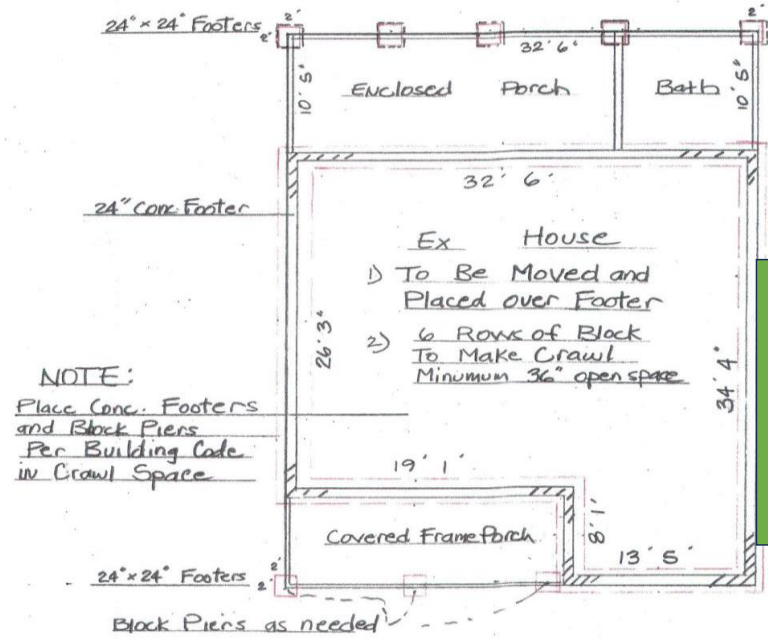 24" x 24" Footers
2'
2'
2'
32' 6"
10' 5"
Enclosed Porch
Bath
10' 5"
32' 6"
24" Conc Footer
Ex House
1) To Be Moved and
Placed over Footer
2) 6 Rows of Block
To Make Crawl
Minumum 36" open space
26' 3"
34' 4"
NOTE:
Place Conc. Footers
and Block Piers
Per Building Code
in Crawl Space
19' 1"
8' 1"
Covered Frame Porch
13' 5"
24" x 24" Footers
2'
2'
Block Piers as needed